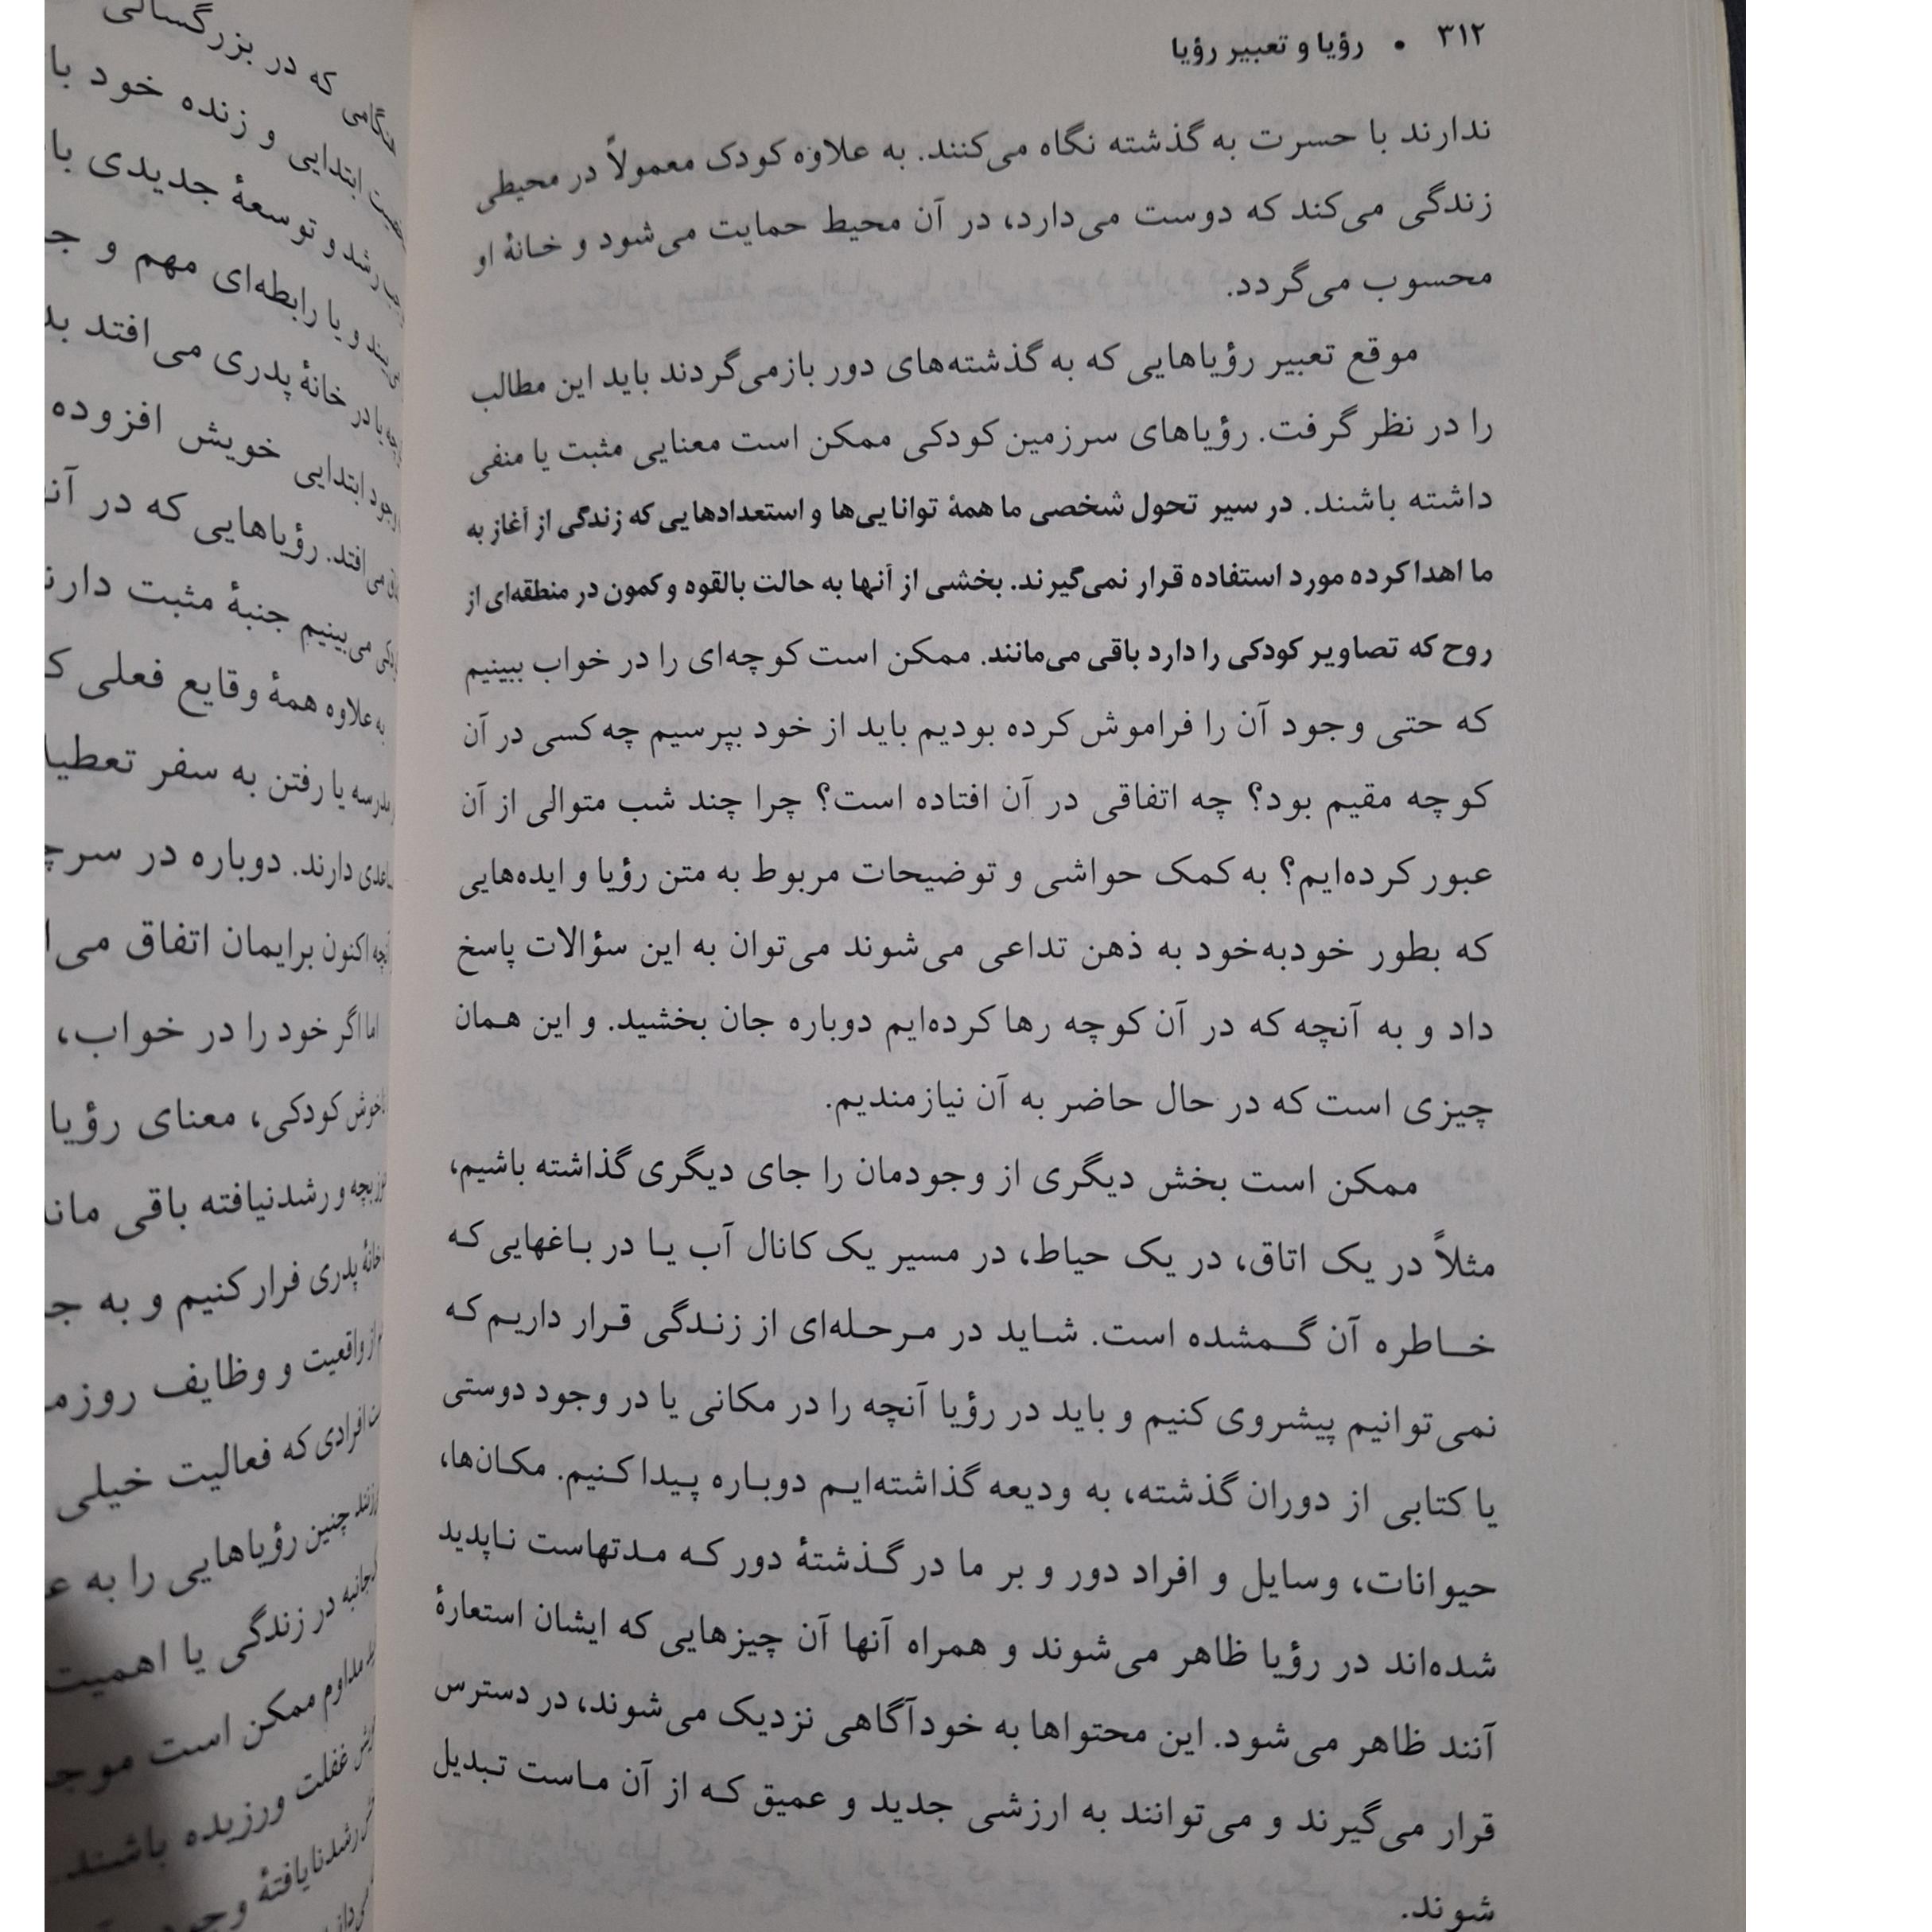 ۳۱۲ • رؤیا و تعبیر رؤیا
ندارند با حسرت به گذشته نگاه می‌کنند. به علاوه کودک معمولاً در محیطی
زندگی می‌کند که دوست می‌دارد، در آن محیط حمایت می‌شود و خانهٔ او
محسوب می‌گردد.
موقع تعبیر رؤیاهایی که به گذشته‌های دور بازمی‌گردند باید این مطالب
را در نظر گرفت. رؤیاهای سرزمین کودکی ممکن است معنایی مثبت یا منفی
داشته باشند. در سیر تحول شخصی ما همهٔ توانایی‌ها و استعدادهایی که زندگی از آغاز به
ما اهدا کرده مورد استفاده قرار نمی‌گیرند. بخشی از آنها به حالت بالقوه و کمون در منطقه‌ای از
روح که تصاویر کودکی را دارد باقی می‌مانند. ممکن است کوچه‌ای را در خواب ببینیم
که حتی وجود آن را فراموش کرده بودیم باید از خود بپرسیم چه کسی در آن
کوچه مقیم بود؟ چه اتفاقی در آن افتاده است؟ چرا چند شب متوالی از آن
عبور کرده‌ایم؟ به کمک حواشی و توضیحات مربوط به متن رؤیا و ایده‌هایی
که بطور خودبه‌خود به ذهن تداعی می‌شوند می‌توان به این سؤالات پاسخ
داد و به آنچه که در آن کوچه رها کرده‌ایم دوباره جان بخشید. و این همان
چیزی است که در حال حاضر به آن نیازمندیم.
ممکن است بخش دیگری از وجودمان را جای دیگری گذاشته باشیم،
مثلاً در یک اتاق، در یک حیاط، در مسیر یک کانال آب یا در باغهایی که
خاطره آن گمشده است. شاید در مرحله‌ای از زندگی قرار داریم که
نمی‌توانیم پیشروی کنیم و باید در رؤیا آنچه را در مکانی یا در وجود دوستی
یا کتابی از دوران گذشته، به ودیعه گذاشته‌ایم دوباره پیدا کنیم. مکان‌ها،
حیوانات، وسایل و افراد دور و بر ما در گذشتهٔ دور که مدتهاست ناپدید
شده‌اند در رؤیا ظاهر می‌شوند و همراه آنها آن چیزهایی که ایشان استعارهٔ
آنند ظاهر می‌شود. این محتواها به خودآگاهی نزدیک می‌شوند، در دسترس
قرار می‌گیرند و می‌توانند به ارزشی جدید و عمیق که از آن ماست تبدیل
شوند.
که در بزرگسالی
ابتدایی و زنده خود با
رشد و توسعهٔ جدیدی با
و یا رابطه‌ای مهم و
در خانهٔ پدری می‌افتد
ابتدایی خویش افزوده
می‌افتد. رؤیاهایی که در
می‌بینیم جنبهٔ مثبت
به علاوه همهٔ وقایع فعلی
مدرسه یا رفتن به سفر
دارند. دوباره در
اکنون برایمان اتفاق
اما اگر خود را در خواب،
کودکی، معنای رؤیا
بچه و رشدنیافته باقی
خانهٔ پدری فرار کنیم و به
از واقعیت و وظایف
افرادی که فعالیت خیلی
چنین رؤیاهایی را به
در زندگی یا اهمیت
مداوم ممکن است
غفلت ورزیده باشند
رشدنایافتهٔ